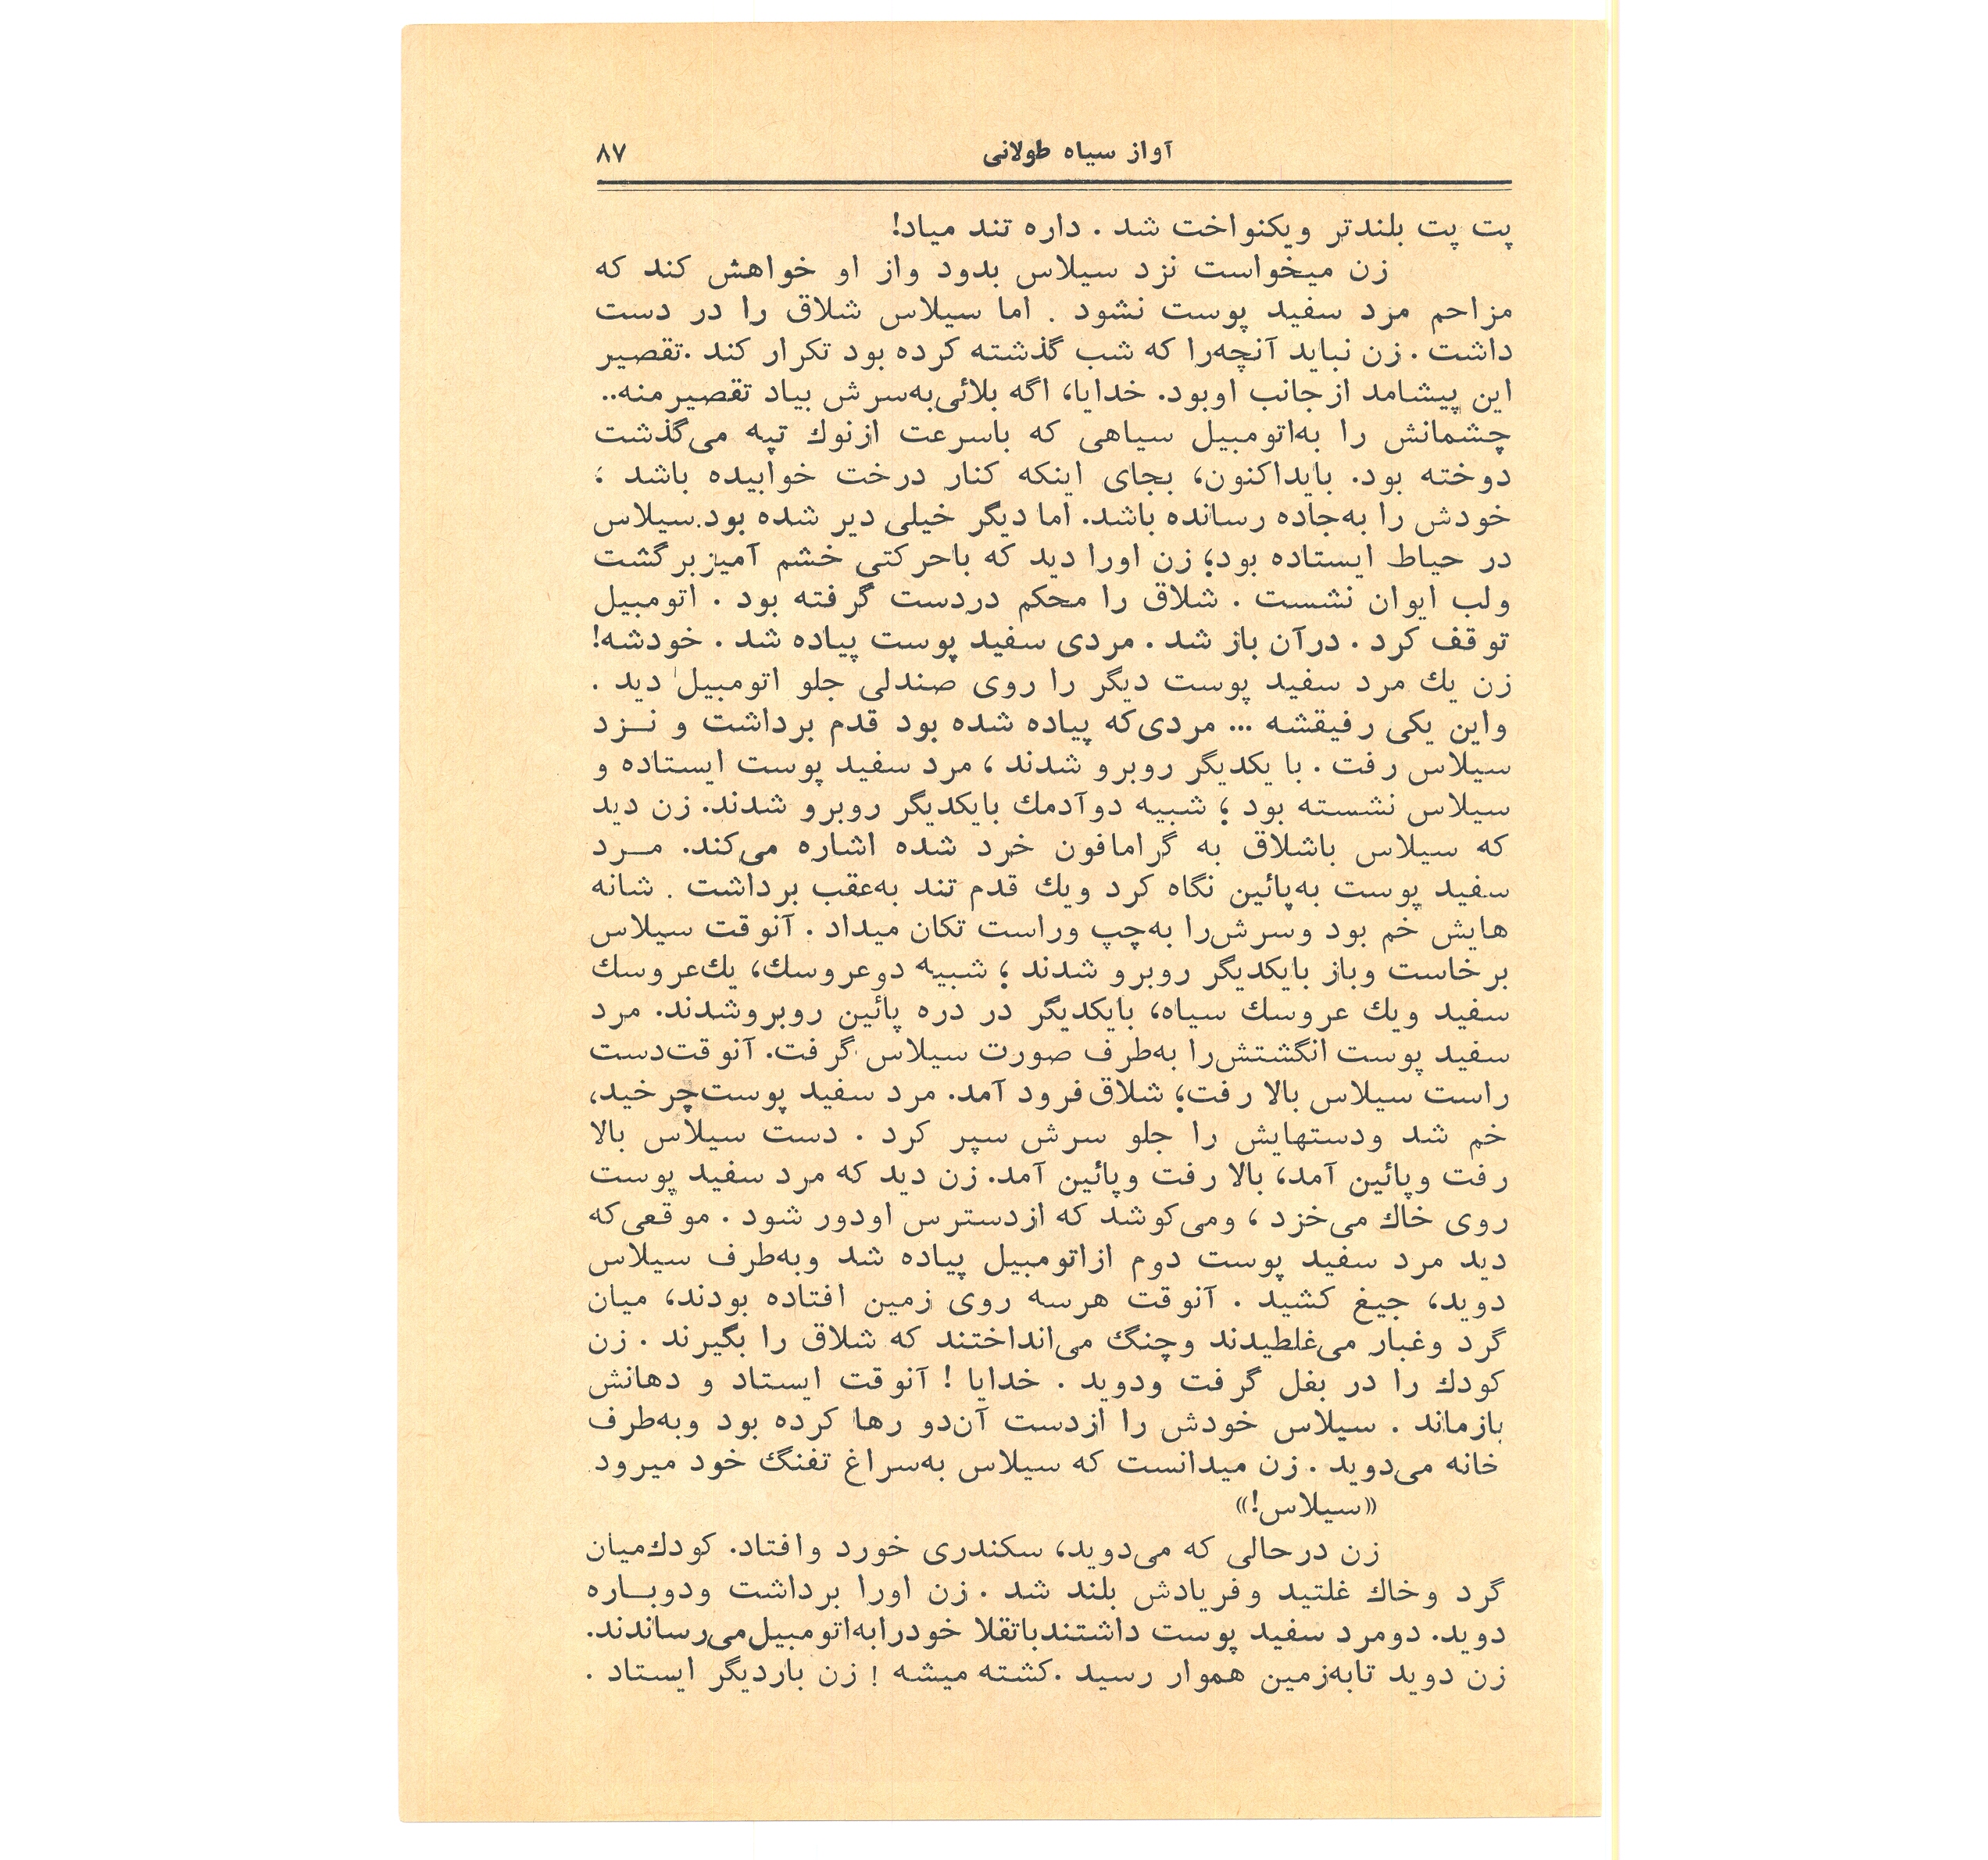 آواز سیاه طولانی ۸۷
پت پت بلندتر ویکنواخت شد . داره تند میاد!
زن میخواست نزد سیلاس بدود واز او خواهش کند که
مزاحم مرد سفید پوست نشود . اما سیلاس شلاق را در دست
داشت . زن نباید آنچه‌را که شب گذشته کرده بود تکرار کند .تقصیر
این پیشامد ازجانب اوبود. خدایا، اگه بلائی‌به‌سرش بیاد تقصیرمنه..
چشمانش را به‌اتومبیل سیاهی که باسرعت ازنوك تپه می‌گذشت
دوخته بود. بایداکنون، بجای اینکه کنار درخت خوابیده باشد ؛
خودش را به‌جاده رسانده باشد. اما دیگر خیلی دیر شده بود.سیلاس
در حیاط ایستاده بود؛ زن اورا دید که باحرکتی خشم آمیزبرگشت
ولب ایوان نشست . شلاق را محکم دردست گرفته بود . اتومبیل
توقف کرد . درآن باز شد . مردی سفید پوست پیاده شد . خودشه!
زن یك مرد سفید پوست دیگر را روی صندلی جلو اتومبیل دید .
واین یکی رفیقشه ... مردی‌که پیاده شده بود قدم برداشت و نـزد
سیلاس رفت . با یکدیگر روبرو شدند ، مرد سفید پوست ایستاده و
سیلاس نشسته بود ؛ شبیه دوآدمك بایکدیگر روبرو شدند. زن دید
که سیلاس باشلاق به گرامافون خرد شده اشاره می‌کند. مـرد
سفید پوست به‌پائین نگاه کرد ویك قدم تند به‌عقب برداشت . شانه
هایش خم بود وسرش‌را به‌چپ وراست تکان میداد . آنوقت سیلاس
برخاست وباز بایکدیگر روبرو شدند ؛ شبیه دوعروسك، یك‌عروسك
سفید ویك عروسك سیاه، بایکدیگر در دره پائین روبروشدند. مرد
سفید پوست انگشتش‌را به‌طرف صورت سیلاس گرفت. آنوقت‌دست
راست سیلاس بالا رفت؛ شلاق فرود آمد. مرد سفید پوست‌چرخید،
خم شد ودستهایش را جلو سرش سپر کرد . دست سیلاس بالا
رفت وپائین آمد، بالا رفت وپائین آمد. زن دید که مرد سفید پوست
روی خاك می‌خزد ، ومی‌کوشد که ازدسترس اودور شود . موقعی‌که
دید مرد سفید پوست دوم ازاتومبیل پیاده شد وبه‌طرف سیلاس
دوید، جیغ کشید . آنوقت هرسه روی زمین افتاده بودند، میان
گرد وغبار می‌غلطیدند وچنگ می‌انداختند که شلاق را بگیرند . زن
کودك را در بغل گرفت ودوید . خدایا ! آنوقت ایستاد و دهانش
بازماند . سیلاس خودش را ازدست آن‌دو رها کرده بود وبه‌طرف
خانه می‌دوید . زن میدانست که سیلاس به‌سراغ تفنگ خود میرود.
«سیلاس!»
زن درحالی که می‌دوید، سکندری خورد وافتاد. کودك‌میان
گرد وخاك غلتید وفریادش بلند شد . زن اورا برداشت ودوبـاره
دوید. دومرد سفید پوست داشتندباتقلا خودرابه‌اتومبیل‌می‌رساندند.
زن دوید تابه‌زمین هموار رسید .کشته میشه ! زن باردیگر ایستاد .